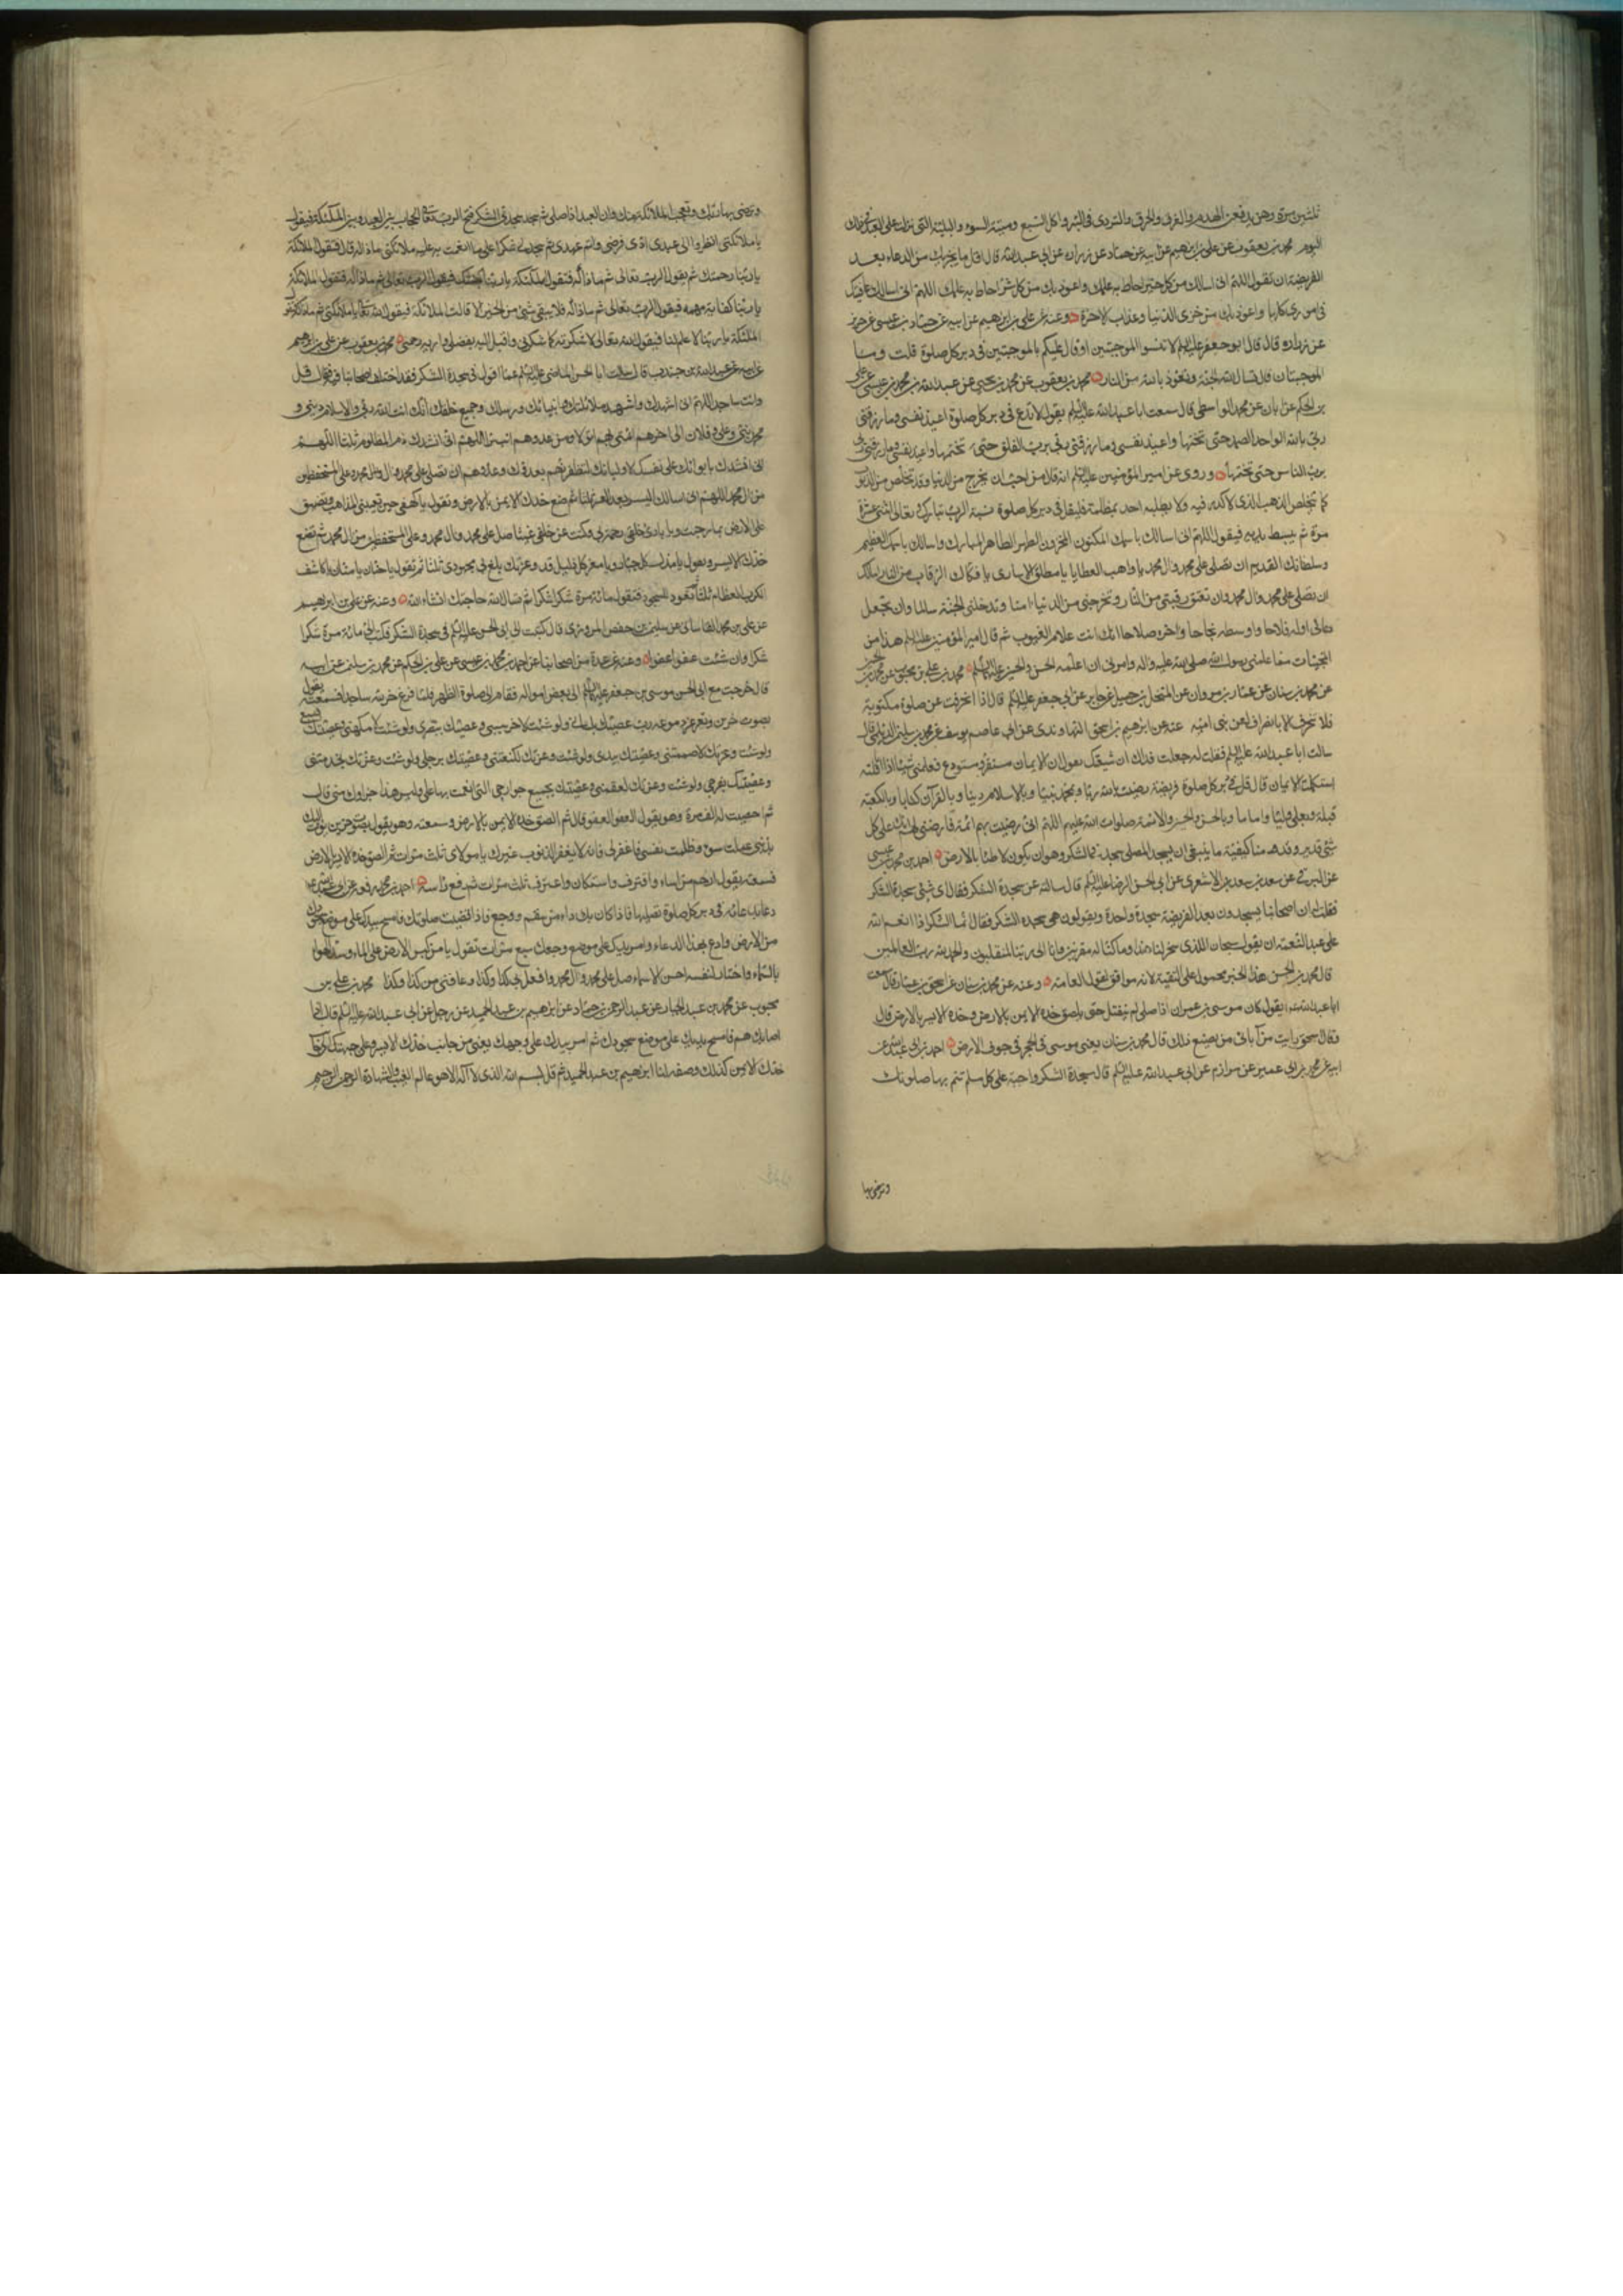 ثلثين مرة وهن يدفعن الهدم والغرق والحرق والتردى فى البئر واكل السبع وميتة السوء والبلية التى نزلت على العبد فى ذلك
اليوم محمد بن يعقوب عن على بن ابرهيم عن ابيه عن حماد عن زرارة عن ابي عبدالله قال اقل ما يجزيك من الدعاء بعد
الفريضة ان تقول اللهم انى اسالك من كل خير احاط به علمك واعوذ بك من كل شر احاط به علمك اللهم انى اسالك عافيتك
فى امورى كلها واعوذ بك من خزى الدنيا وعذاب الاخرة وعنه عن على بن ابرهيم عن ابيه عن حماد بن عيسى عن حريز
عن زرارة قال قال ابو جعفر عليه السلم لا تنسوا الموجبتين او قال عليكم بالموجبتين فى دبر كل صلوة قلت وما
الموجبتان قال تسال الله الجنة وتعوذ بالله من النار محمد بن يعقوب عن محمد بن يحيى عن عبد الله بن محمد بن عيسى عن على
بن الحكم عن ابان عن محمد الواسطى قال سمعت ابا عبدالله عليه السلم يقول لا تدع فى دبر كل صلوة اعيذ نفسى وما رزقنى
ربى بالله الواحد الصمد حتى تختمها واعيذ نفسى وما رزقنى ربى برب الفلق حتى تختمها واعيذ نفسى وما رزقنى ربى
برب الناس حتى تختمها وروى عن امير المؤمنين عليه السلم انه قال من احب ان يخرج من الدنيا وقد تخلص من الذنوب
كما يتخلص الذهب الذى لا كدر فيه ولا يطلبه احد بمظلمة فليقل فى دبر كل صلوة نسبة الرب تبارك وتعالى اثنى عشرة
مرة ثم يبسط يديه فيقول اللهم انى اسالك باسمك المكنون المخزون الطهر الطاهر المبارك واسالك باسمك العظيم
وسلطانك القديم ان تصلى على محمد وال محمد يا واهب العطايا يا مطلق الاسارى يا فكاك الرقاب من النار اسالك
ان تصلى على محمد وال محمد وان تعتق رقبتى من النار وتخرجنى من الدنيا امنا وتدخلنى الجنة سالما وان تجعل
دعائى اوله فلاحا واوسطه نجاحا واخره صلاحا انك انت علام الغيوب ثم قال امير المؤمنين عليه السلم هذا من
المخبيات مما علمنى رسول الله صلى الله عليه واله وامرنى ان اعلمه الحسن والحسين عليهما السلم محمد بن على بن محبوب عن محمد بن الحسين
عن محمد بن سنان عن عمار بن مروان عن المنخل بن جميل عن جابر عن ابى جعفر عليه السلم قال اذا انحرفت عن صلوة مكتوبة
فلا تنحرف الا بانصراف لعن بنى امية عنه عن ابرهيم بن اسحق النهاوندى عن ابى عاصم يوسف عن محمد بن سليمن الديلمى قال
سالت ابا عبدالله عليه السلم فقلت له جعلت فداك ان شيعتك تقول ان الايمان مستقر ومستودع فعلمنى شيئا اذا قلته
استكملت الايمان قال قل فى دبر كل صلوة فريضة رضيت بالله ربا وبمحمد نبيا وبالاسلام دينا وبالقرآن كتابا وبالكعبة
قبلة وبعلى وليا واماما وبالحسن والحسين والائمة صلوات الله عليهم اللهم انى رضيت بهم ائمة فارضنى لهم انك على كل
شئ قدير وقدمنا كيفية ما ينبغى ان يسجد المصلى سجدة الشكر وهو ان يكون لاطئا بالارض احمد بن محمد بن عيسى
عن البرقى عن سعد بن سعد الاشعرى عن ابى الحسن الرضا عليه السلم قال سالته عن سجدة الشكر فقال اى شئ سجدة الشكر
فقلت له ان اصحابنا يسجدون بعد الفريضة سجدة واحدة ويقولون هى سجدة الشكر فقال انما الشكر اذا انعم الله
على عبد النعمة ان يقول سبحان الذى سخر لنا هذا وما كنا له مقرنين وانا الى ربنا لمنقلبون والحمد لله رب العالمين
قال محمد بن الحسن هذا الخبر محمول على التقية لانه موافق لقول العامة وعنه عن محمد بن سنان عن اسحق بن عمار قال سمعت
ابا عبدالله يقول كان موسى بن عمران اذا صلى لم ينفتل حتى يلصق خده الايمن بالارض وخده الايسر بالارض قال
وقال اسحق رايت من آبائى من يصنع ذلك قال محمد بن سنان يعنى موسى فى الحجر فى جوف الارض احمد بن ابى عبدالله عن
ابيه عن محمد بن ابى عمير عن مرازم عن ابى عبدالله عليه السلم قال سجدة الشكر واجبة على كل مسلم تتم بها صلوتك
وترضى بها
وترضى بها ربك وتعجب الملائكة منك وان العبد اذا صلى ثم سجد سجدة الشكر فتح الرب تعالى الحجاب بين العبد وبين الملئكة فيقول
يا ملائكتى انظروا الى عبدى ادى فرضى واتم عهدى ثم سجد لى شكرا على ما انعمت به عليه ملائكتى ماذا له قال فتقول الملائكة
يا ربنا رحمتك ثم يقول الرب تعالى ثم ماذا له فتقول الملئكة يا ربنا جنتك فيقول الرب تعالى ثم ماذا له فتقول الملائكة
يا ربنا كفاية مهمه فيقول الرب تعالى ثم ماذا له فلا يبقى شئ من الخير الا قالت الملائكة فيقول الله تعالى يا ملائكتى ثم ماذا له فتقول
الملئكة يا ربنا لا علم لنا فيقول الله تعالى لاشكرنه كما شكرنى واقبل اليه بفضلى واريه رحمتى محمد بن يعقوب عن على بن ابرهيم
عن ابيه عن عبدالله بن جندب قال سالت ابا الحسن الماضى عليه السلم عما اقول فى سجدة الشكر فقد اختلف اصحابنا فيه فقال قل
وانت ساجد اللهم انى اشهدك واشهد ملائكتك وانبيائك ورسلك وجميع خلقك انك انت الله ربى والاسلام دينى و
محمد نبيى وعلى وفلان الى اخرهم ائمتى بهم اتولى ومن عدوهم اتبرا اللهم انى انشدك دم المظلوم ثلثا اللهم
انى انشدك بايوائك على نفسك لاوليائك لتظفرنهم بعدوك وعدوهم ان تصلى على محمد وال محمد وعلى المستحفظين
من ال محمد اللهم انى اسالك اليسر بعد العسر ثلثا ثم ضع خدك الايمن بالارض وتقول يا كهفى حين تعيينى المذاهب وتضيق
على الارض بما رحبت ويا بارئ خلقى رحمة بى وكنت عن خلقى غنيا صل على محمد وال محمد وعلى المستحفظين من ال محمد ثم تضع
خدك الايسر وتقول يا مذل كل جبار ويا معز كل ذليل قد وعزتك بلغ بى مجهودى ثلثا ثم تقول يا حنان يا منان يا كاشف
الكرب العظام ثلثا ثم تعود للسجود فتقول مائة مرة شكرا شكرا ثم تسال الله حاجتك انشاء الله وعنه عن على بن ابرهيم
عن على بن محمد القاسانى عن سليمن بن حفص المروزى قال كتبت الى ابى الحسن عليه السلم فى سجدة الشكر فكتب الى مائة مرة شكرا
شكرا وان شئت عفوا عفوا وعنه عن عدة من اصحابنا عن احمد بن محمد بن عيسى عن على بن الحكم عن محمد بن سليمن عن ابيه
قال خرجت مع ابى الحسن موسى بن جعفر عليهما السلم الى بعض امواله فقام الى صلوة الظهر فلما فرغ خر لله ساجدا فسمعته يقول
بصوت حزين وتغرغر دموعه رب عصيتك بلسانى ولو شئت وعزتك لاخرستنى وعصيتك ببصرى ولو شئت وعزتك لاكمهتنى وعصيتك بسمعى
ولو شئت وعزتك لاصممتنى وعصيتك بيدى ولو شئت وعزتك لكنعتنى وعصيتك برجلى ولو شئت وعزتك لجذمتنى
وعصيتك بفرجى ولو شئت وعزتك لعقمتنى وعصيتك بجميع جوارحى التى انعمت بها على وليس هذا جزاؤك منى قال
ثم احصيت له الف مرة وهو يقول العفو العفو قال ثم الصق خده الايمن بالارض وسمعته وهو يقول بصوت حزين بؤت اليك
بذنبى عملت سوء وظلمت نفسى فاغفر لى فانه لا يغفر الذنوب غيرك يا مولاى ثلث مرات ثم الصق خده الايسر بالارض
فسمعته يقول ارحم من اساء واقترف واستكان واعترف ثلث مرات ثم رفع راسه احمد بن محمد رفعه عن ابى عبدالله
دعا به عليه فى دبر كل صلوة تصليها فاذا كان بك داء من سقم ووجع فاذا قضيت صلوتك فامسح بيدك على موضع سجودك
من الارض وادع بهذا الدعاء وامر بيدك على موضع وجعك سبع مرات تقول يا من كبس الارض على الماء وسد الهواء
بالسماء واختار لنفسه احسن الاسماء صل على محمد وال محمد وافعل بى كذا وكذا وعافنى من كذا وكذا محمد بن على بن
محبوب عن محمد بن عبد الجبار عن عبد الرحمن بن حماد عن ابرهيم بن عبد الحميد عن رجل عن ابى عبدالله عليه السلم قال اذا
اصابك هم فامسح يدك على موضع سجودك ثم امر يدك على وجهك يعنى من جانب خدك الايسر وعلى جبهتك الى جانب
خدك الايمن كذلك وصفه لنا ابرهيم بن عبد الحميد ثم قل بسم الله الذى لا اله الا هو عالم الغيب والشهادة الرحمن الرحيم